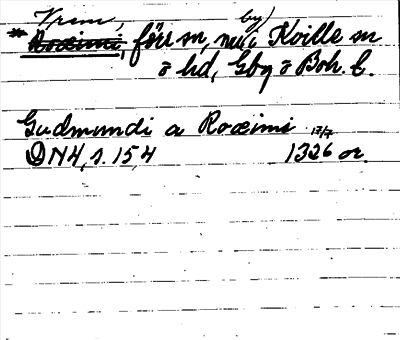 Vrem,
* Roæimi, förr sn, nu i Kville sn
by)
ö hd, Gbg o Boh. l.
Gudmundi a Roæimi 17/7
DN4, s. 154 1326 or.